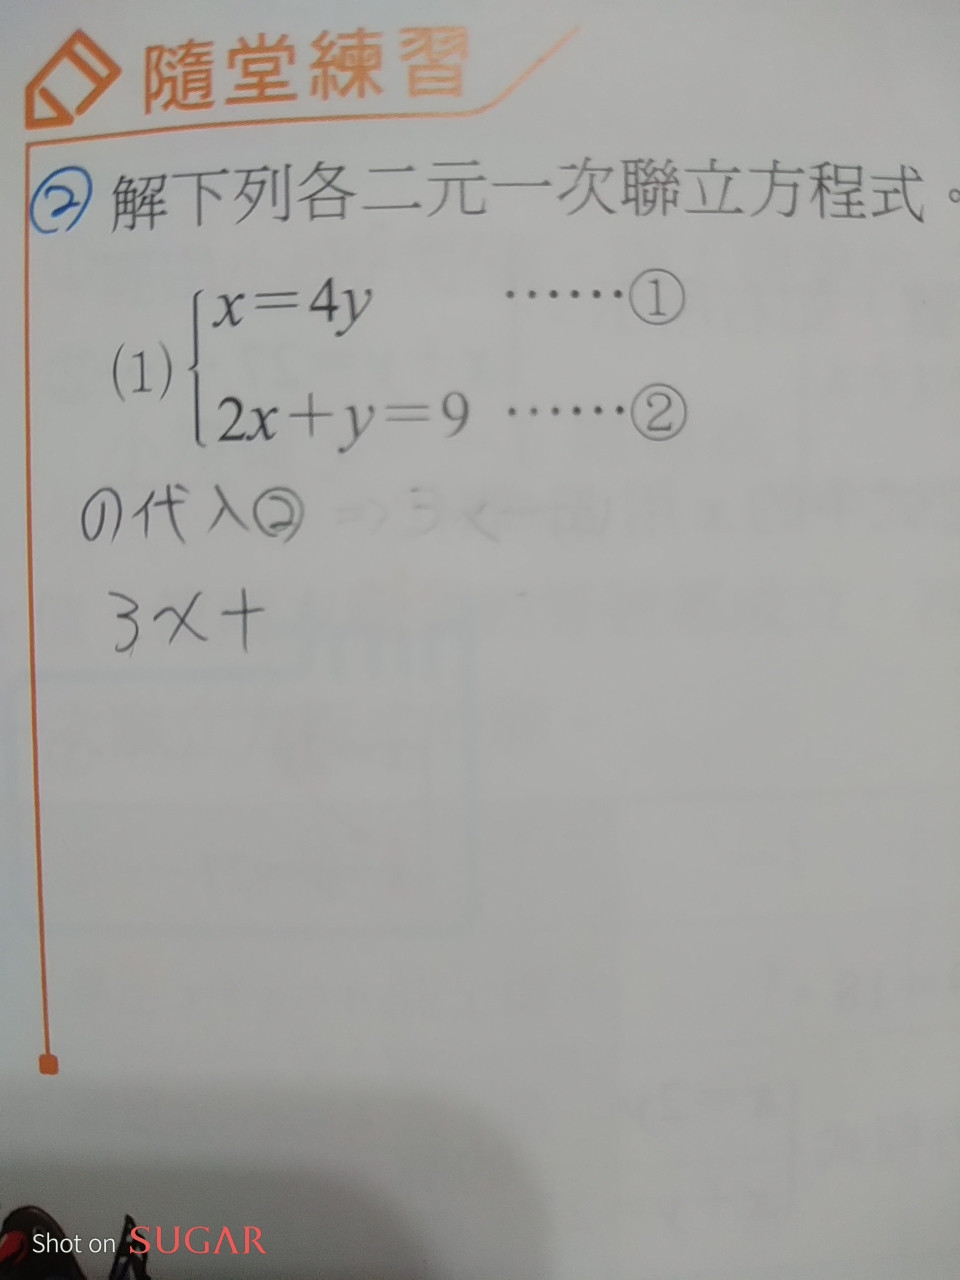 隨堂練習
② 解下列各二元一次聯立方程式。
(1) { x=4y ……①
2x+y=9 ……②
①代入②
3x+
Shot on SUGAR